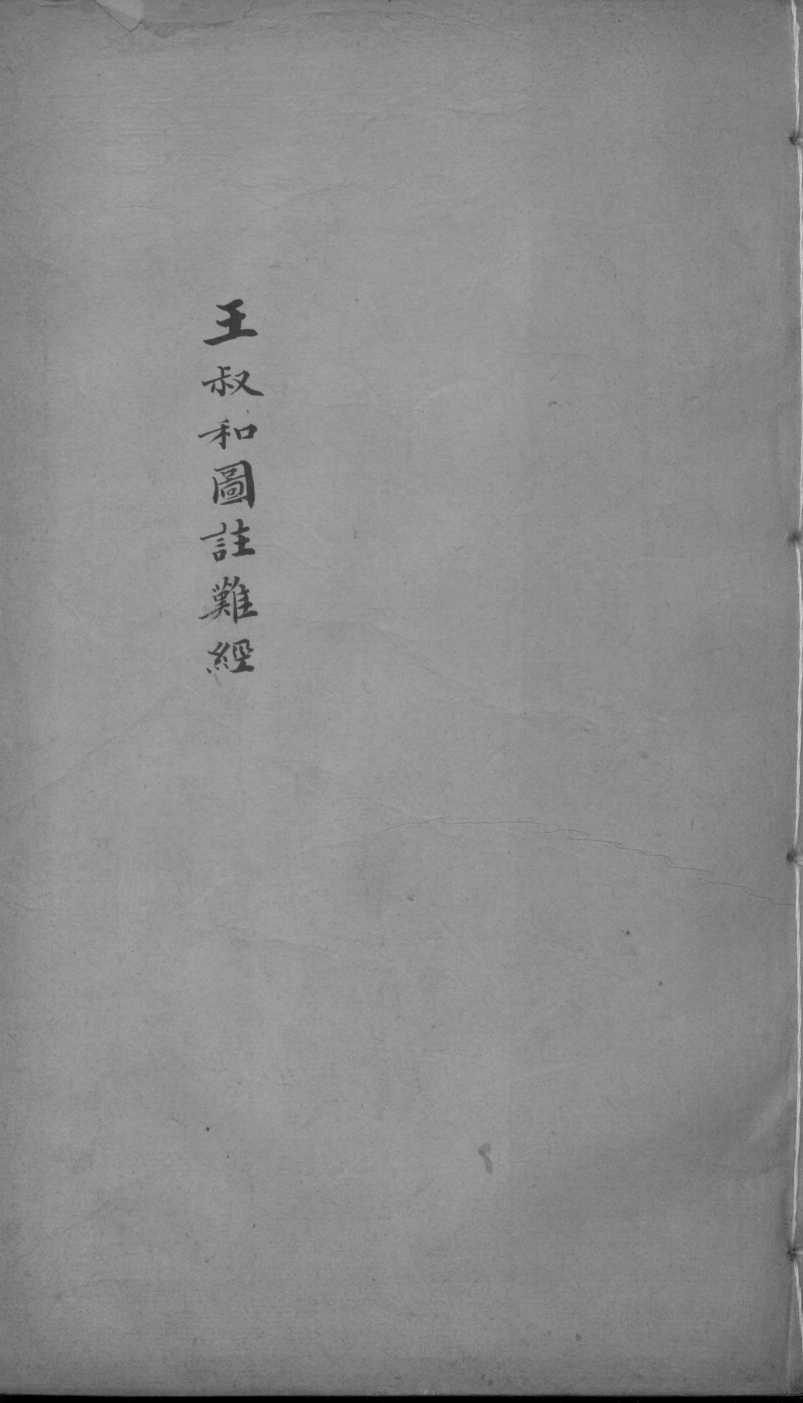 王叔和圖註難經